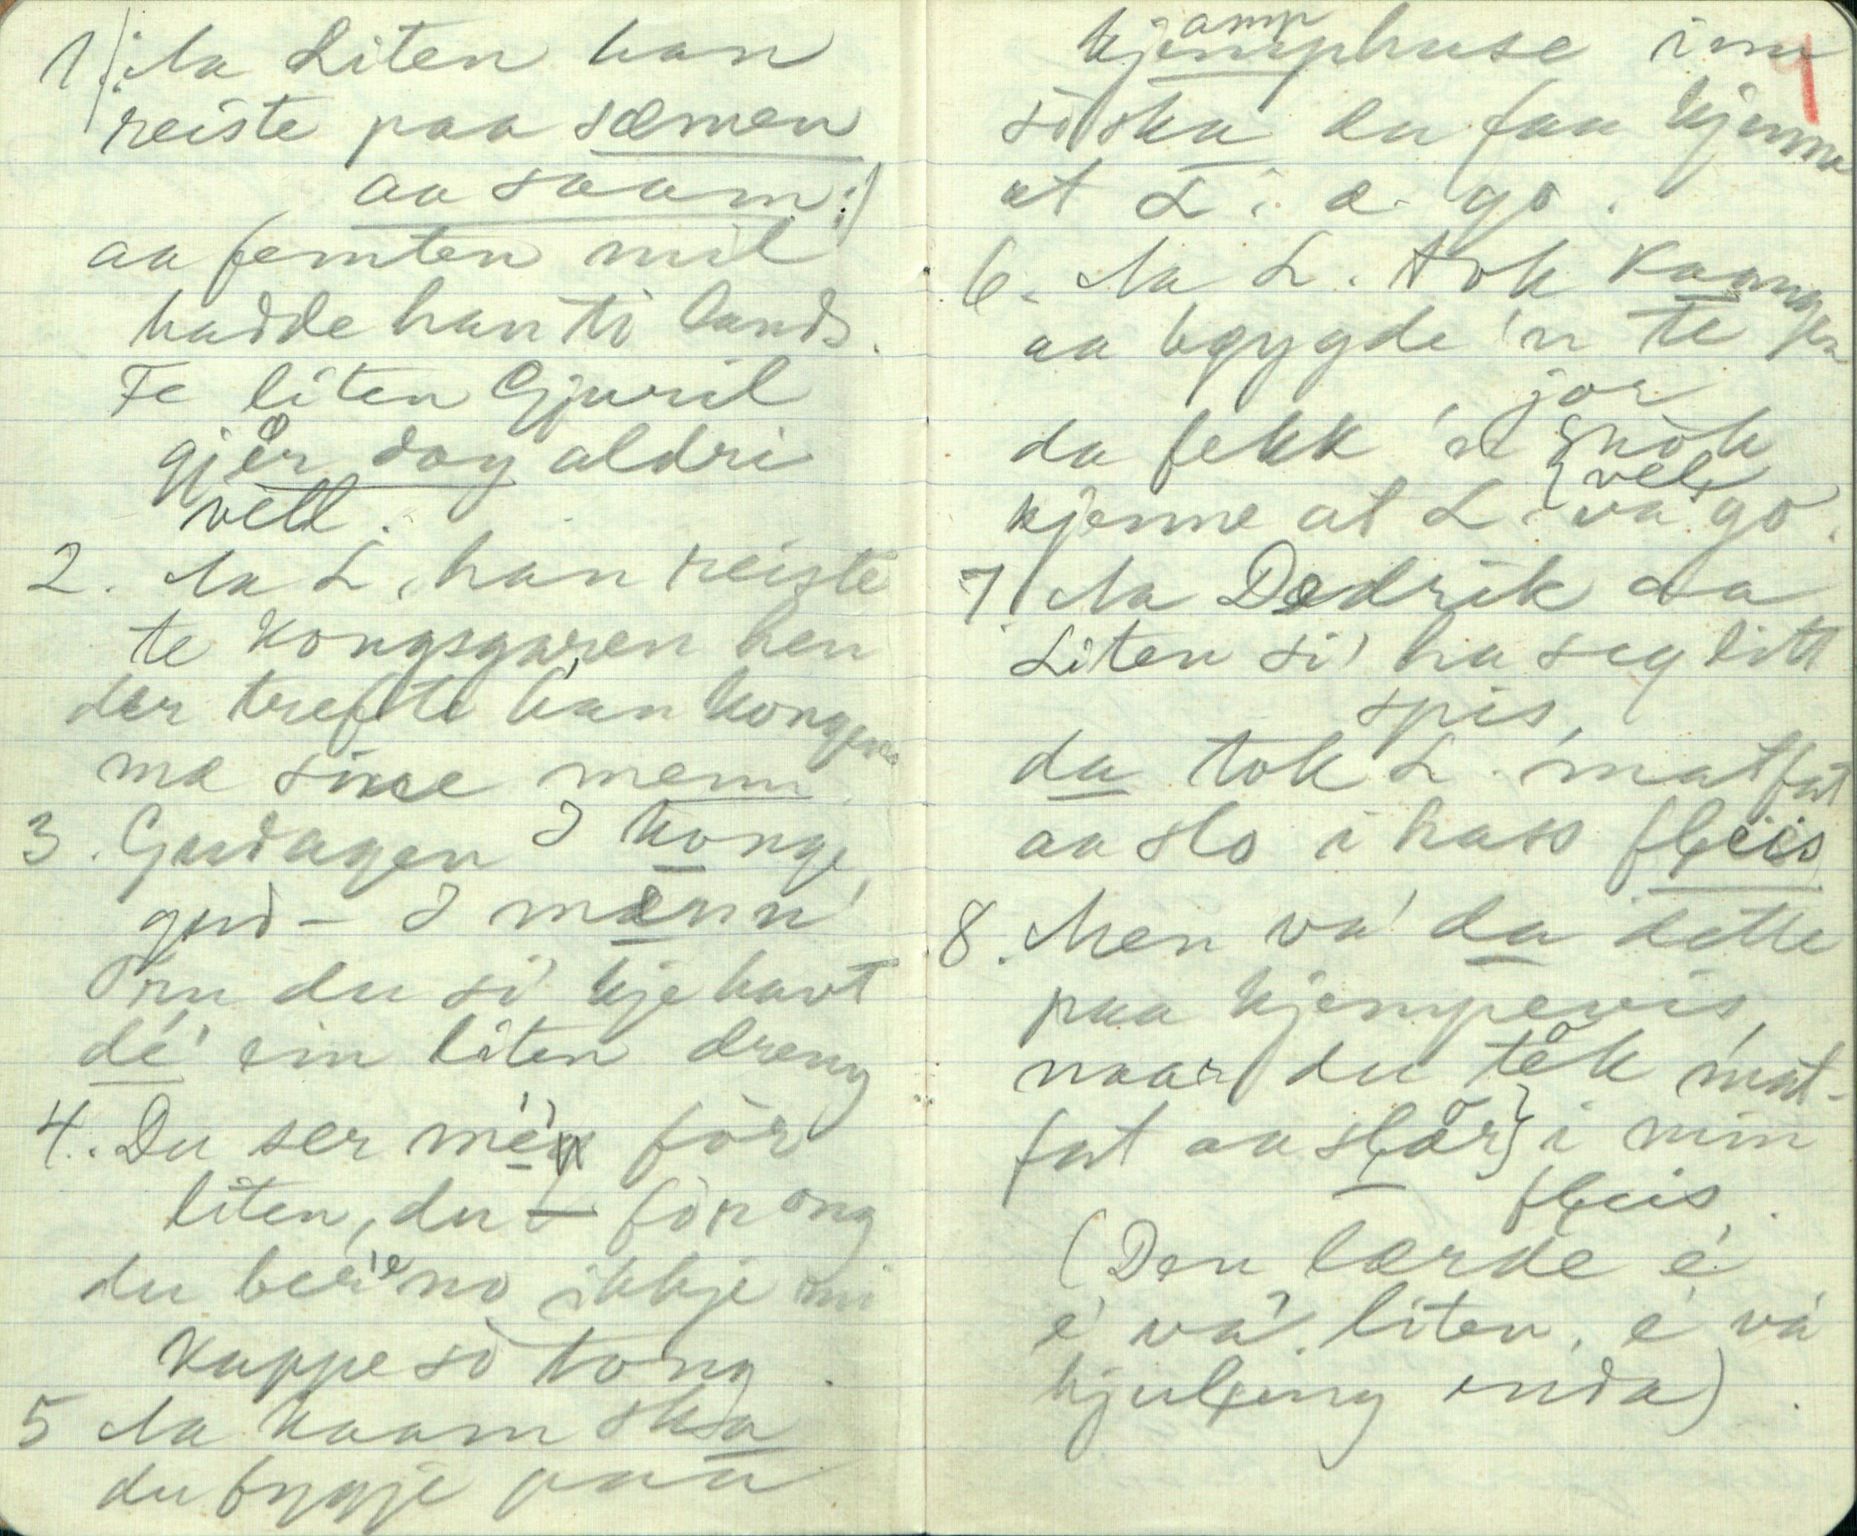 1. /: Aa Liten han
reiste paa sæmen
aa saam :/
aa femten mil
hadde han ti lands.
Te liten Gjuril
gjer dog aldri
vell.
2. Aa L. han reiste
te Kongsgaren hen
der trefte han kongen
mæ sinæ menn.
3. Gudagen I konge,
gud – I mænn
Om du si kje havt
dé ein liten dreng
4. Du ser mé for
liten, du for ong
du berer no ikkje mi
kappe so tong.
5 Aa kaam ska
du byggje paa
kjemphuse inn
amp
so ska du faa kjenne
at L. i. æ. go.
6. Aa L. tok Kaangjen
aa bøygde 'n te
jor
da fekk 'n { nok
{ vel
kjenne at L. va go.
7 Aa Dedrik aa
Liten si' ha seg litt
spis,
da tok L. matfat
aa slo i hass fleis
8. Men va' da dette
paa kjempevis,
naar du tok mat-
fat aa slær} i min
fleis.
(Den lærde é
é va liten, é va
kjuleung enda).